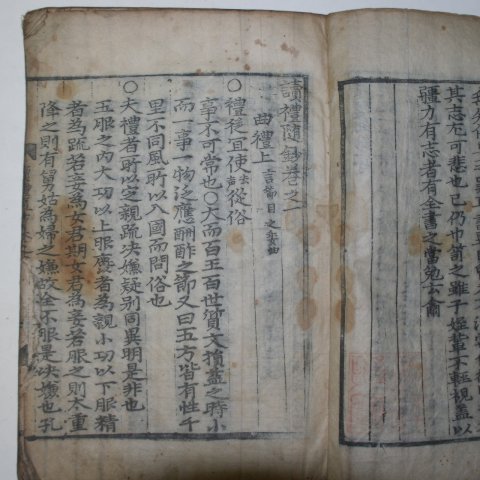 其志尤可悲也已仍巾笥之雖子姪輩不輕視盖以
疆力有志者有全書之當勉云爾
讀禮隨鈔卷之一
曲禮上
○禮從宜使從俗
事不可常也○大而百王百世質文損益之時小
而一事一物泛應酬酢之節又曰五方皆有性千
里不同風所以入國而問俗也
○夫禮者所以定親疏決嫌疑別同異明是非也
五服之內大功以上服麤者為親小功以下服精
者為疏若妾為女君期女君為妾若服之則太重
降之則有舅姑為婦之嫌故全不服是決嫌也孔